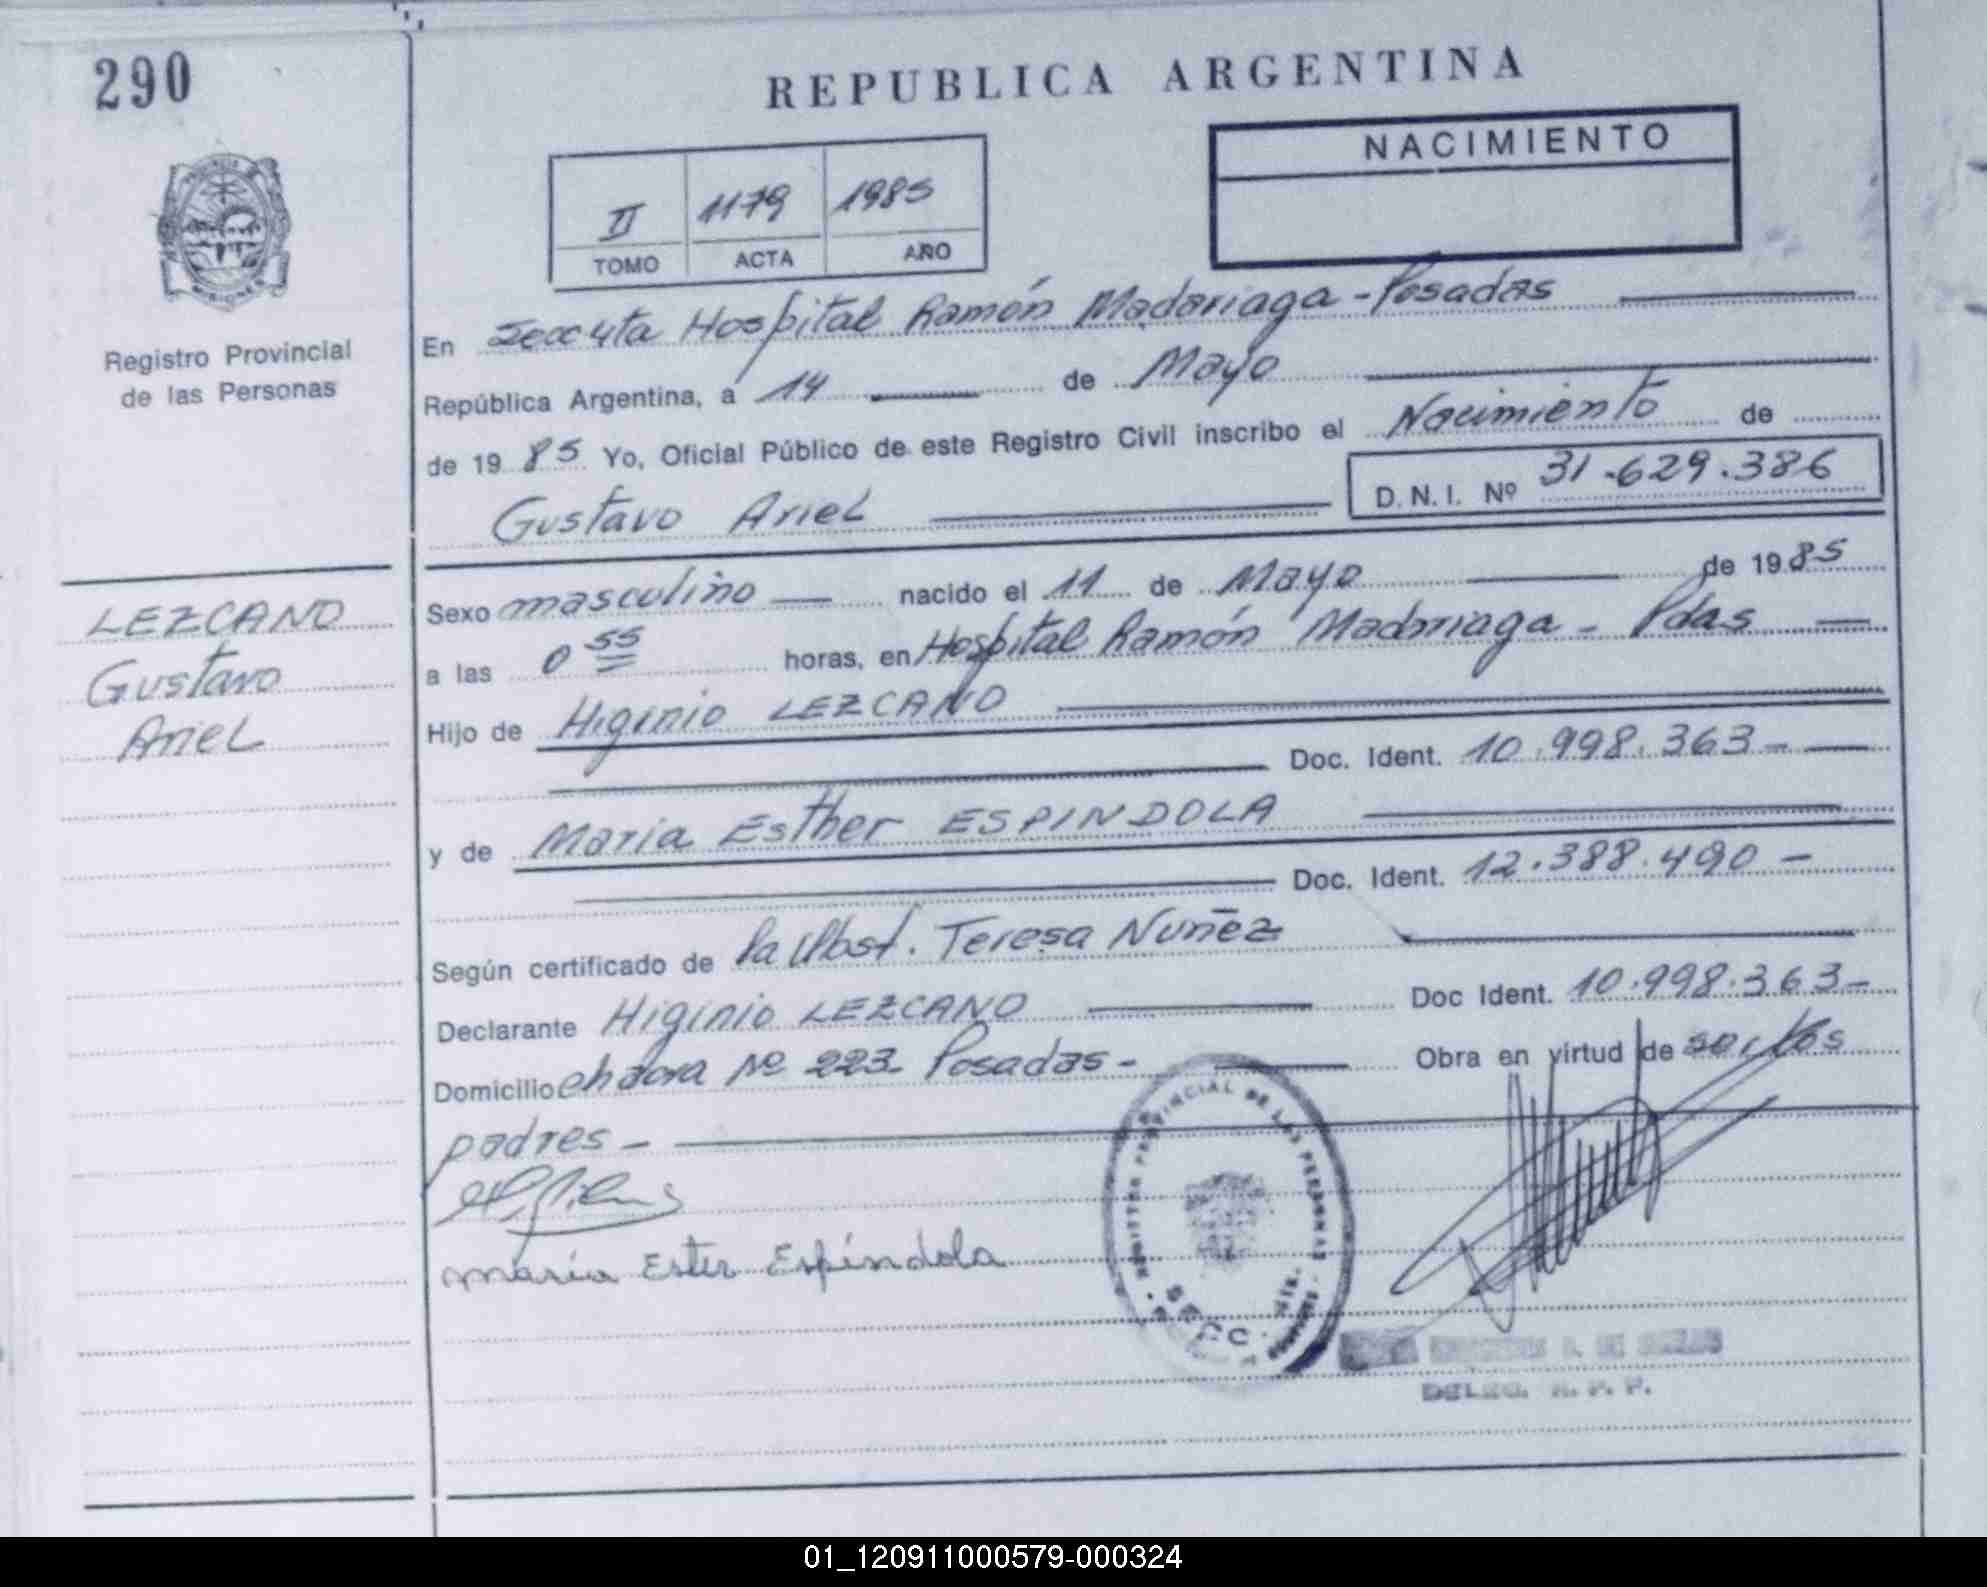 290
REPUBLICA ARGENTINA
NACIMIENTO
II 1179 1985
TOMO ACTA AÑO
Registro Provincial
de las Personas
En Hospital Ramón Madariaga - Posadas
República Argentina, a 14 de Mayo
de 19 85 Yo, Oficial Público de este Registro Civil inscribo el Nacimiento de
Gustavo Ariel D.N.I. Nº 31.629.386
LEZCANO
Gustavo
Ariel
Sexo masculino nacido el 11 de Mayo de 19 85
a las 0 55 horas, en Hospital Ramón Madariaga - Pdas
Hijo de Higinio LEZCANO
Doc. Ident. 10.998.363-
y de Maria Esther ESPINDOLA
Doc. Ident. 12.388.490 -
Según certificado de la Obst. Teresa Nuñez
Declarante Higinio LEZCANO Doc Ident. 10.998.363-
Domicilio Nº 223- Posadas - Obra en virtud de
padres -
maría Ester Espíndola
PROVINCIAL DE LAS PERSONAS
SECC.
DELEG. R. P. P.
01_120911000579-000324